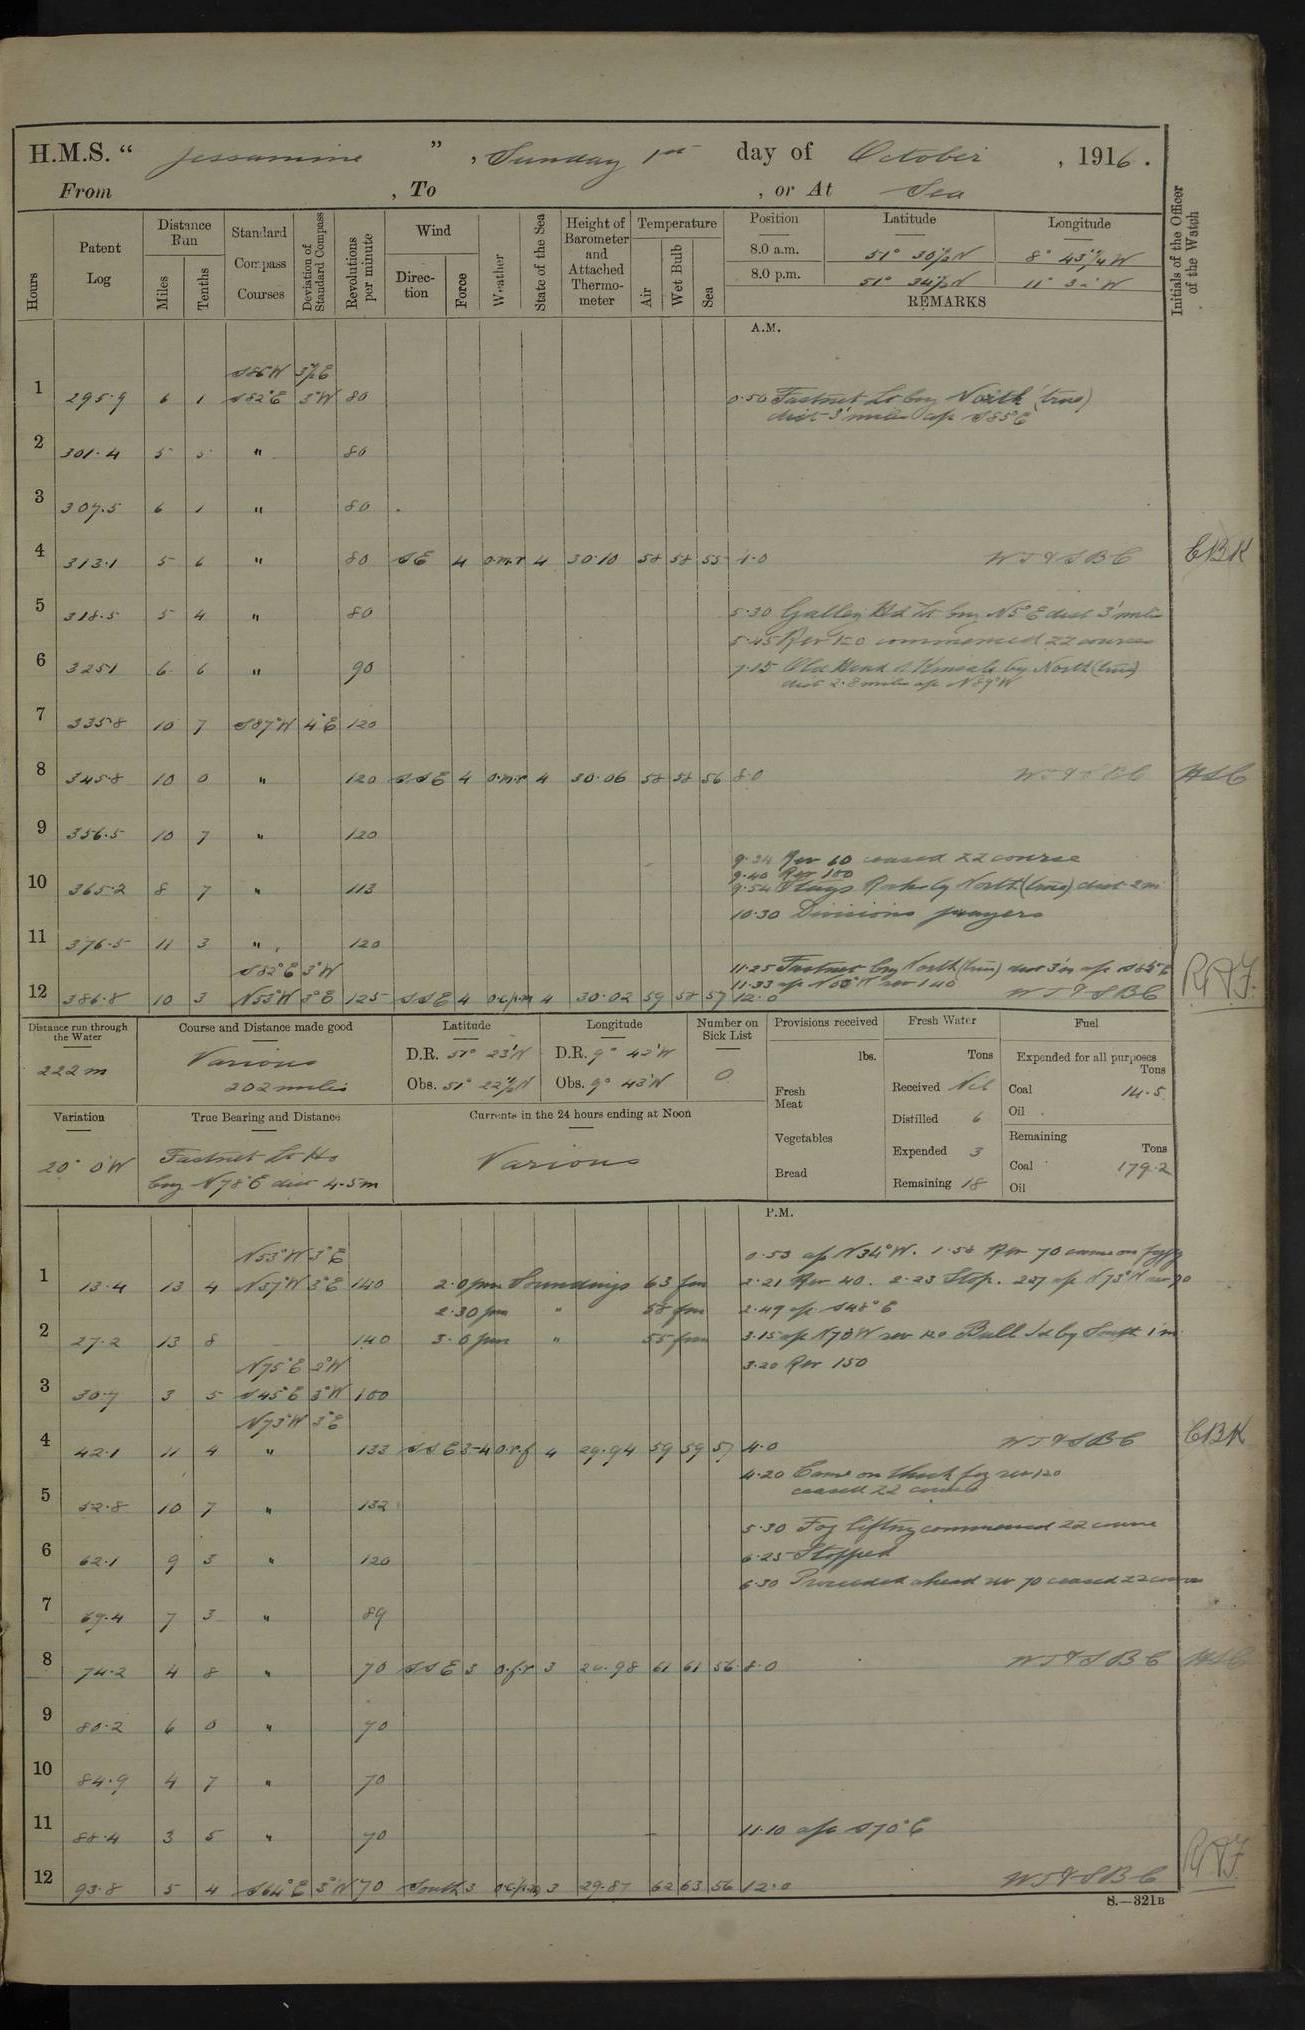 H.M.S. " Jessamine " , Sunday 1st day of October , 1916.
From , To , or At Sea
Hours
Patent Log
Distance Run
Miles
Tenths
Standard Compass Courses
Deviation of Standard Compass
Revolutions per minute
Wind
Direction
Force
Weather
State of the Sea
Height of Barometer and Attached Thermometer
Temperature
Air
Wet Bulb
Sea
Position Latitude Longitude
8.0 a.m. 51° 30½'N 8° 43¼'W
8.0 p.m. 51° 34½'N
REMARKS
Initials of the Officer of the Watch
A.M.
S86W 3½E
1 295.9 6 1 S82°E 3°W 80 0.50 Fastnet Lt brg North (true)
dist 3' miles a/c S85°E
2 301.4 5 5 " 80
3 307.5 6 1 " 80
4 313.1 5 6 " 80 SE 4 o.m.r 4 30.10 58 58 55 4.0 W T & S B C CBK
5 318.5 5 4 " 80 5.30 Galley Hd Lt brg N5°E dist 3' miles
5.45 Rev 120 commenced ZZ course
6 325.1 6 6 " 90 7.15 Old Head of Kinsale by North (true)
dist 2.8 miles a/c N89°W
7 335.8 10 7 S87°W 4°E 120
8 345.8 10 0 " 120 SSE 4 o.m.r 4 30.06 58 58 56 8.0 W T & S B C HSC
9 356.5 10 7 " 120
9.34 Rev 60 ceased ZZ course
9.40 Rev 100
10 365.2 8 7 " 113 9.54 Stags Rocks by North (true) dist 2m
10.30 Divisions prayers
11 376.5 11 3 " 120
S82°E 3°W 11.25 Fastnet brg North (true) dist 3'm a/c S85°E
11.33 a/c rev 140
12 386.8 10 3 N53°W 3°E 125 SSE 4 o.c.p.m 4 30.02 59 58 57 12.0 W T & S B C RDF
Distance run through the Water
222 m
Course and Distance made good
Various
202 miles
Latitude
D.R. 51° 23'N
Obs. 51° 22½'N
Longitude
D.R. 9° 42'W
Obs. 9° 43'W
Number on Sick List
0
Provisions received
lbs.
Fresh Meat
Vegetables
Bread
Fresh Water
Tons
Received Nil
Distilled 6
Expended 3
Remaining 18
Fuel
Expended for all purposes
Tons
Coal 14.5
Oil
Remaining
Tons
Coal 179.2
Oil
Variation
20° 0'W
True Bearing and Distance
Fastnet Lt Ho
brg N78°E dist 4.5m
Currents in the 24 hours ending at Noon
Various
P.M.
N53°W 3°E 0.53 a/c N34°W. 1.50 Rev 70 came on foggy
1 13.4 13 4 N57°W 3°E 140 2.0 pm Soundings 63 fm 2.21 Rev 40. 2.23 Stop. 237 a/c N73°W rev 70
2.30 pm " 58 fm 2.49 a/c S48°E
2 27.2 13 8 140 3.0 pm " 55 fm 3.15 a/c N70W rev 120 Bull Id by South 1 m
N75°E 2°W 3.20 Rev 150
3 30.7 3 5 S45°E 3°W 100
N73°W 3°E
4 42.1 11 4 " 133 SSE 3-4 o.r.f 4 29.94 59 59 57 4.0 W T & S B C CBK
4.20 Came on thick fog rev 120
ceased ZZ course
5 52.8 10 7 " 132
5.30 Fog lifting commenced ZZ course
6 62.1 9 3 " 120 6.25 Stopped
6.30 Proceeded ahead rev 70 ceased ZZ course
7 69.4 7 3 " 89
8 74.2 4 8 " 70 SSE 3 o.f.r 3 29.98 61 61 56 8.0 W T & S B C HSC
9 80.2 6 0 " 70
10 84.9 4 7 " 70
11 88.4 3 5 " 70 11.10 a/c S70°E
12 93.8 5 4 S64°E 3°W 70 South 3 3 29.87 62 63 56 12.0 W T & S B C RDF
S.—321B